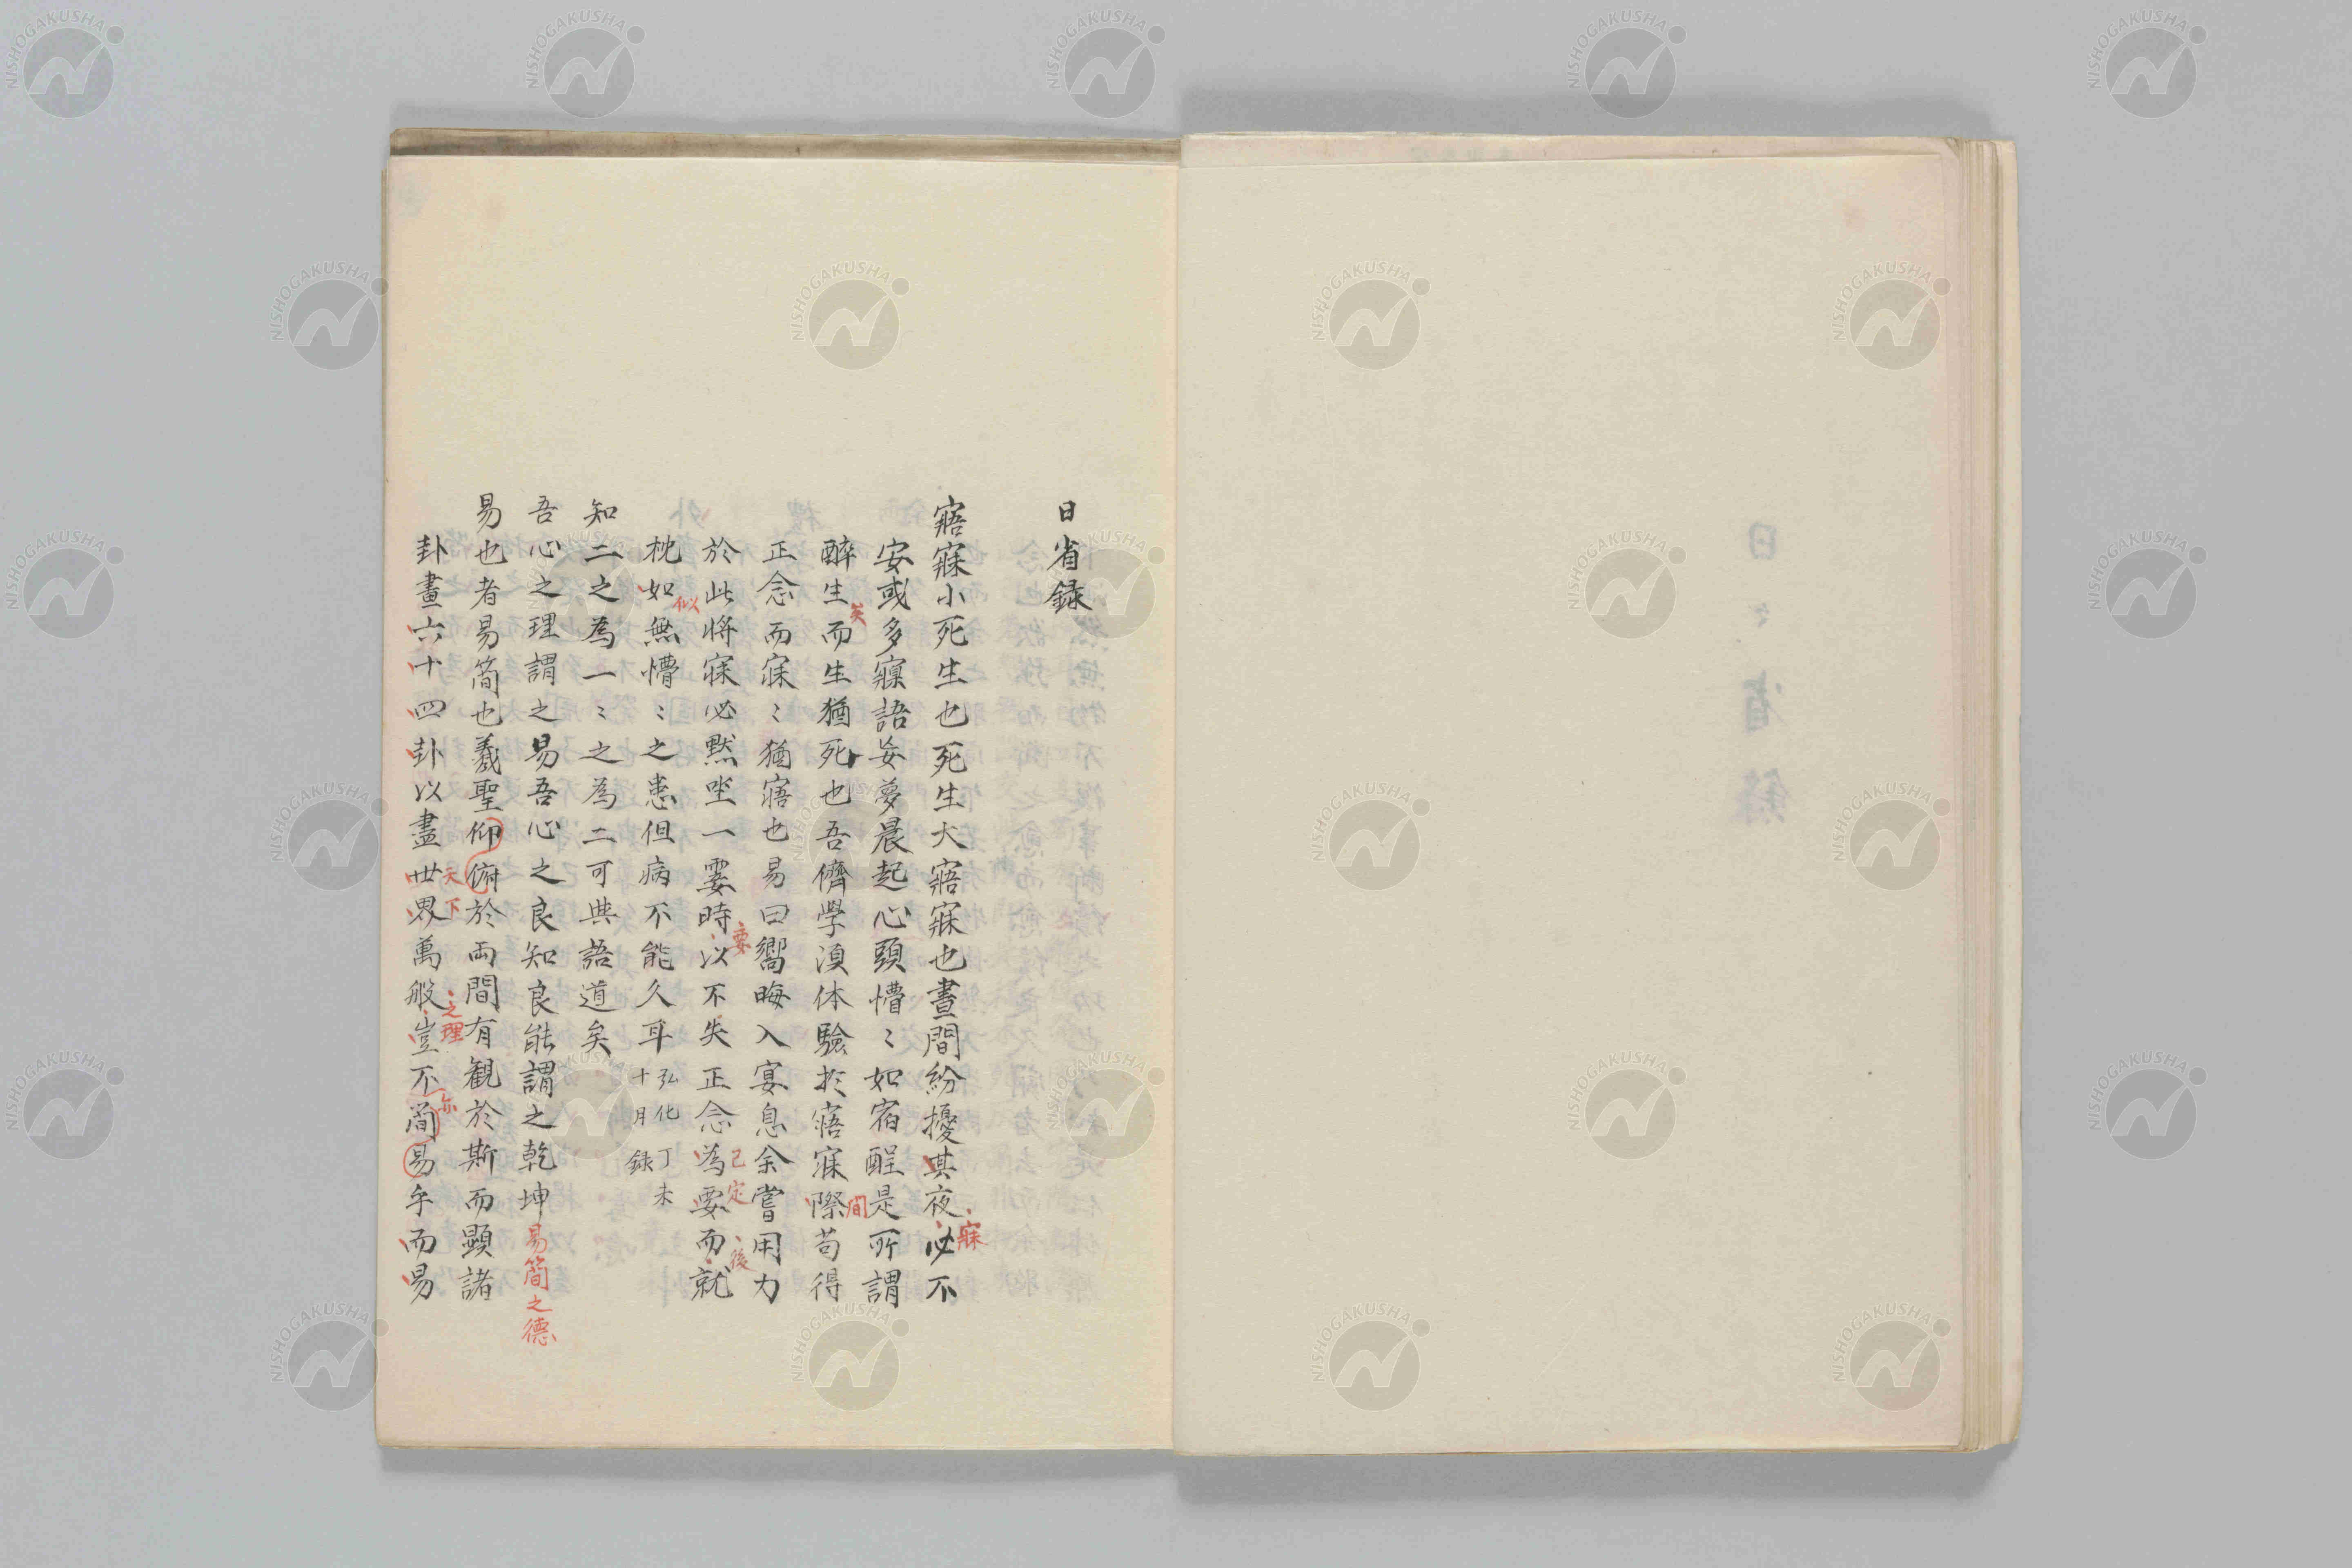 日省録
寤寐小死生也死生大寤寐也晝間紛擾其夜必不
寐
安或多寱語妄夢晨起心頭懵〻如宿酲是所謂
醉生而生猶死也吾儕學須体驗於寤寐際苟得
矣
間
正念而寐〻猶寤也易曰嚮晦入宴息余嘗用力
於此将寐必黙坐一霎時以不失正念為要而就
要
己定
後
枕如無懵〻之患但病不能久耳
似
弘化丁未
十月録
知二之為一〻之為二可与語道矣
吾心之理謂之易吾心之良知良能謂之乾坤易簡之德
易也者易簡也羲聖仰俯於両間有観於斯而顕諸
卦畫六十四卦以盡世界萬般豈不簡易乎而易
天下
之理
亦
NISHOGAKUSHA